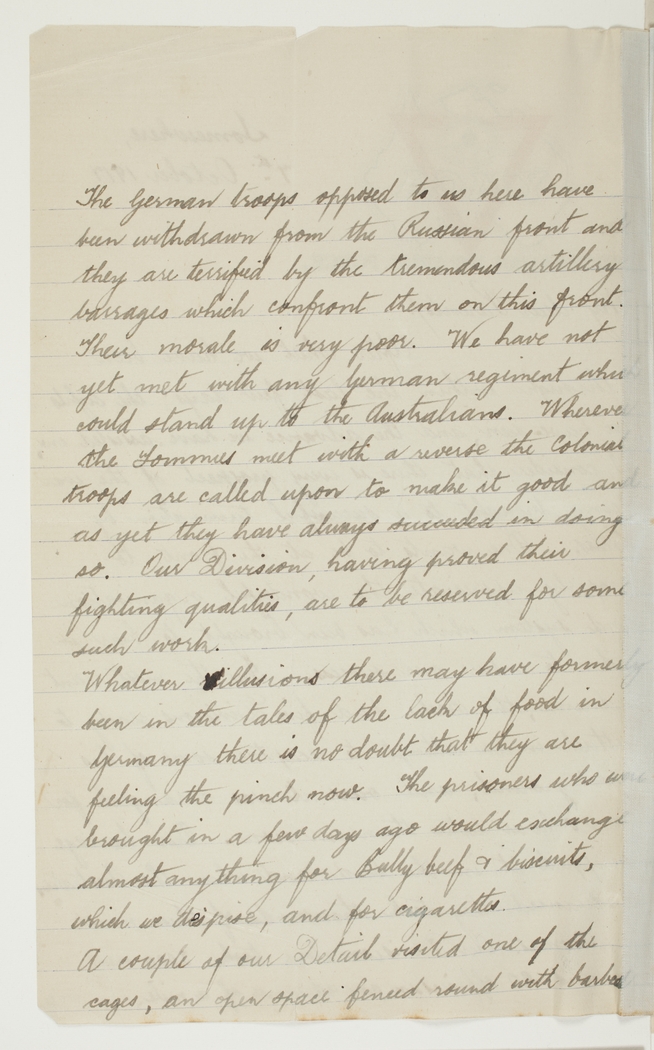 The German troops opposed to us here have
been withdrawn from the Russian front and
they are terrified by the tremendous artillery
barrages which confront them on this front.
Their morale is very poor. We have not
yet met with any German regiment who
could stand up to the Australians. Whereve
the Tommies meet with a reverse the Colonial
troops are called upon to make it good and
as yet they have always succeeded in doing
so. Our Division, having proved their
fighting qualities, are to be reserved for some
such work.
Whatever illusions there may have formerly
been in the tales of the lack of food in
Germany there is no doubt that they are
feeling the pinch now. The prisoners who
brought in a few days ago would exchange
almost anything for Bully beef & biscuits,
which we despise, and for cigarettes.
A couple of our Detail visited one of the
cages, an open space fenced round with barbed